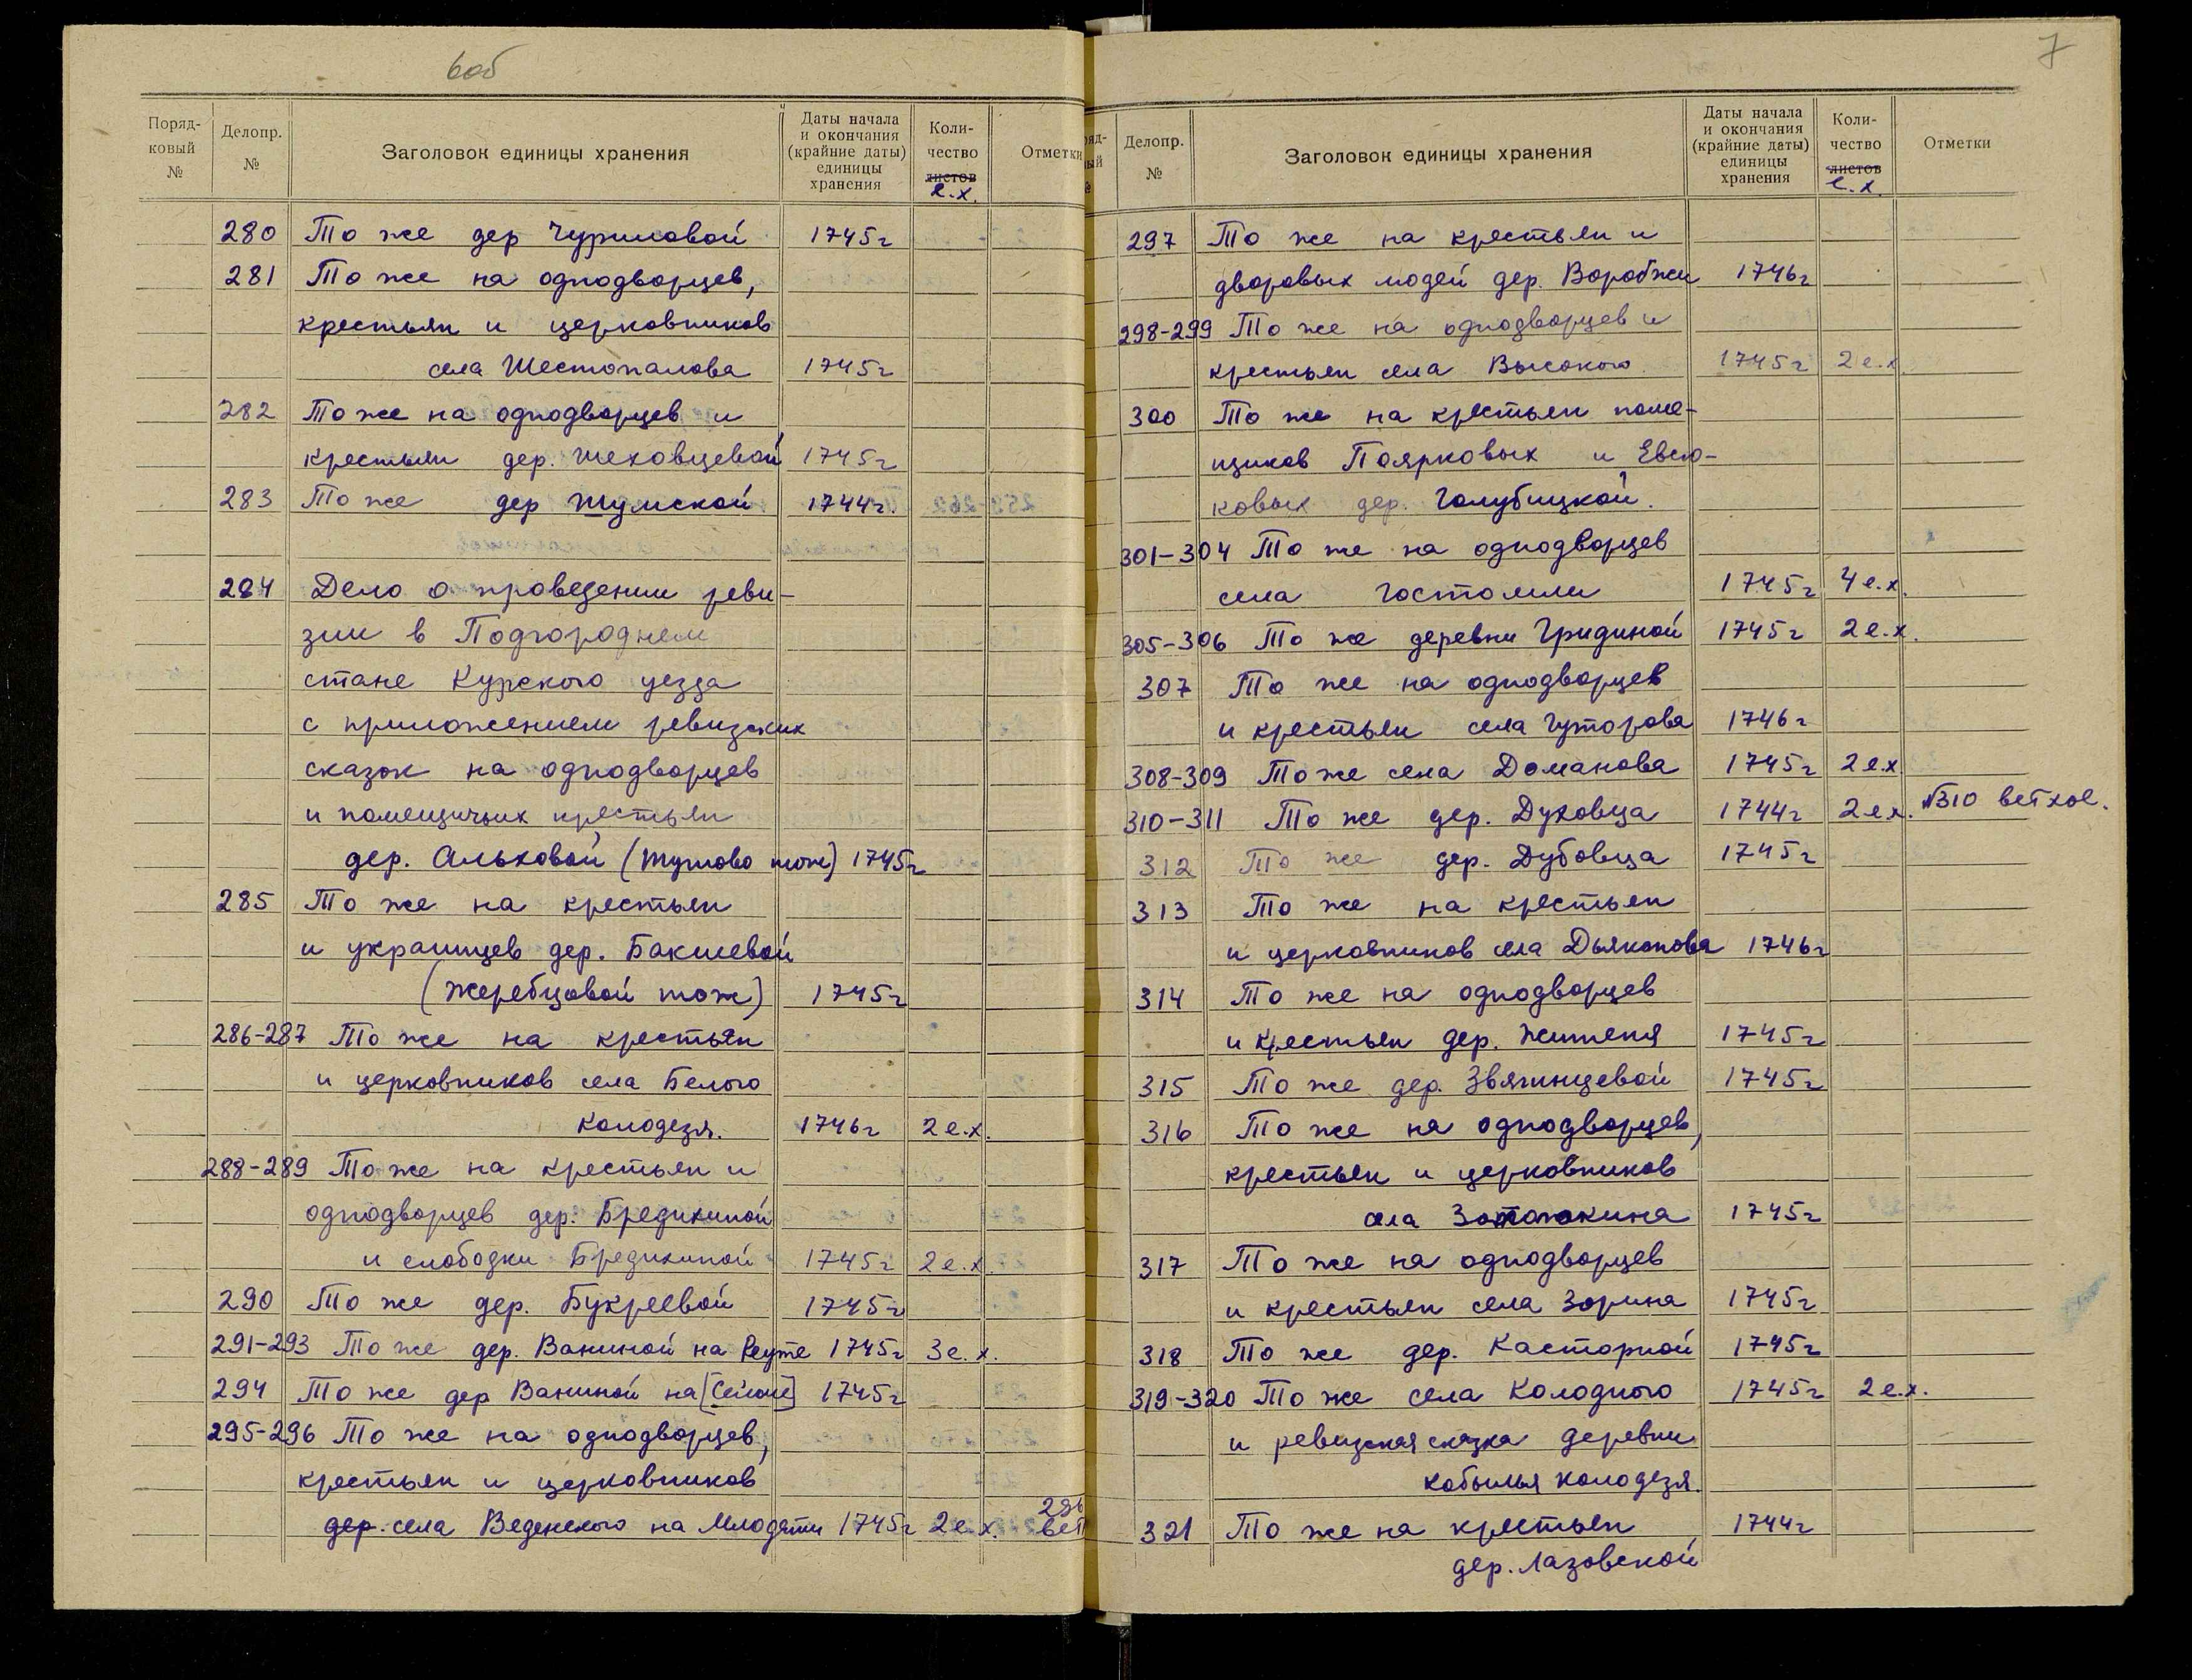 6об
Поряд-
ковый
№
Делопр.
№
Заголовок единицы хранения
Даты начала
и окончания
(крайние даты)
единицы
хранения
Коли-
чество
листов
е.х.
Отметки
280 То же дер Чуриловой 1745г
281 То же на однодворцев,
крестьян и церковников
села Шестопалова 1745г
282 То же на однодворцев и
крестьян дер. Шеховцевой 1745г
283 То же дер Шумской 1744г.
284 Дело о проведении реви-
зии в Подгороднем
стане Курского уезда
с приложением ревизских
сказок на однодворцев
и помещичьих крестьян
дер. Альховой (Шумово тож) 1745г
285 То же на крестьян
и украинцев дер. Бакшевой
(Жеребцовой тож) 1745г
286-287 То же на крестьян
и церковников села Белого
Колодезя. 1746г 2 е.х.
288-289 То же на крестьян и
однодворцев дер. Бредихиной
и слободки Бредихиной 1745г 2 е.х.
290 То же дер. Букреевой 1745г
291-293 То же дер. Ваниной на Реуте 1745г 3 е.х.
294 То же дер Ваниной на [Сейме] 1745г
295-296 То же на однодворцев,
крестьян и церковников
дер. села Веденского на Млодати 1745г 2 е.х. 296
вет
7
Делопр.
№
Заголовок единицы хранения
Даты начала
и окончания
(крайние даты)
единицы
хранения
Коли-
чество
листов
е.х.
Отметки
297 То же на крестьян и
дворовых людей дер. Воробжи 1746г
298-299 То же на однодворцев и
крестьян села Высокого 1745г 2 е.х.
300 То же на крестьян поме-
щиков Поярковых и Евсю-
ковых дер. Голубицкой.
301-304 То же на однодворцев
села Гостомли 1745г 4 е.х.
305-306 То же деревни Гридиной 1745г 2 е.х.
307 То же на однодворцев
и крестьян села Гуторова 1746г
308-309 То же села Доманова 1745г 2 е.х.
310-311 То же дер. Духовца 1744г 2 е.х. №310 ветхое.
312 То же дер. Дубовца 1745г
313 То же на крестьян
и церковников села Дьяконова 1746г
314 То же на однодворцев
и крестьян дер. Жиленя 1745г
315 То же дер. Звягинцевой 1745г
316 То же на однодворцев,
крестьян и церковников
села Золотухина 1745г
317 То же на однодворцев
и крестьян села Зорина 1745г
318 То же дер. Касторной 1745г
319-320 То же села Колодного 1745г 2 е.х.
и ревизская сказка деревни
Кобылья колодезя.
321 То же на крестьян 1744г
дер. Лазовской